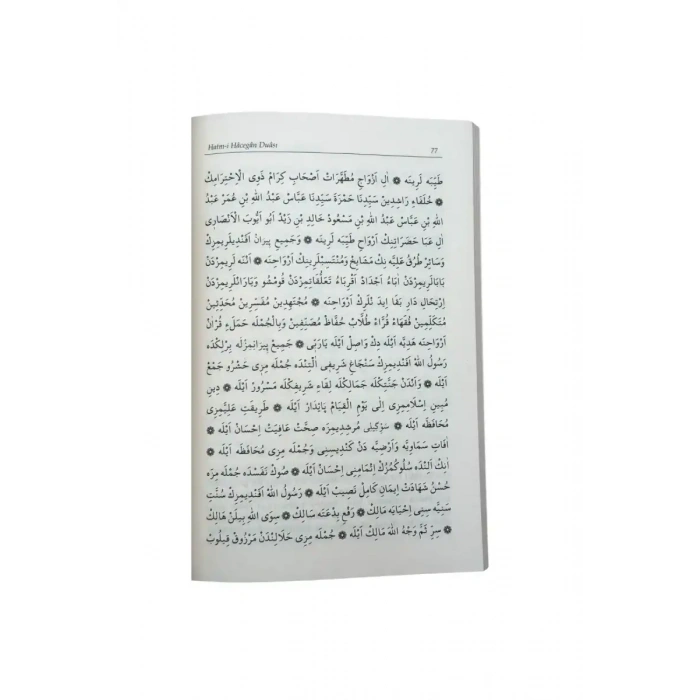 Hatm-i Hâcegân Duâsı 77
طَيِّبَه لَرِينَه ❁ اٰلِ اَزْوَاجِ مُطَهَّرَاتْ اَصْحَابِ كِرَامْ ذَوِى الْاِحْتِرَامِكْ
❁ خُلَفَاءِ رَاشِدِينْ سَيِّدِنَا حَمْزَهْ سَيِّدِنَا عَبَّاسْ عَبْدُ اللهِ بْنِ عُمَرْ عَبْدُ
اللهِ بْنِ عَبَّاسْ عَبْدُ اللهِ بْنِ مَسْعُودْ خَالِدِ بْنِ زَيْدْ اَبُو اَيُّوبَ الْاَنْصَارِى
اٰلِ عَبَا حَضَرَاتِنِكْ اَرْوَاحِ طَيِّبَه لَرِينَه ❁ وَجَمِيعِ پِيرَانْ اَفَنْدِيلَرِيمِزِكْ
وَسَائِرْ طُرُقِ عَلِيَّه نِكْ مَشَايِخْ وَمُنْتَسِبْلَرِينِكْ اَرْوَاحِنَه ❁ اَنَّنَه لَرِيمِزْدَنْ
بَابَالَرِيمِزْدَنْ اٰبَاءْ اَجْدَادْ اَقْرِبَاءْ تَعَلُّقَاتِمِزْدَنْ قُومْشُو وَيَارَانْلَرِيمِزْدَنْ
اِرْتِحَالِ دَارِ بَقَا اِيدَنْلَرِكْ اَرْوَاحِنَه ❁ مُجْتَهِدِينْ مُفَسِّرِينْ مُحَدِّثِينْ
مُتَكَلِّمِينْ فُقَهَاءْ قُرَّاءْ طُلَّابْ حُفَّاظْ مُصَنِّفِينْ وَبِالْجُمْلَه حَمَلَهءِ قُرْاٰنْ
اَرْوَاحِنَه هَدِيَّه اَيْلَه دِكْ وَاصِلْ اَيْلَه يَارَبِّى ❁ جَمِيعِ پِيرَانِمِزْلَه بِرْلِكْدَه
رَسُولُ اللهْ اَفَنْدِيمِزِكْ سَنْجَاغِ شَرِيفِى اَلْتِنْدَه جُمْلَه مِزِى حَشْرُو جَمْعْ
اَيْلَه ❁ وَاَنْدَنْ جَنَّتِكْلَه جَمَالِكْلَه لِقَاءِ شَرِيفِكْلَه مَسْرُورْ اَيْلَه ❁ دِينِ
مُبِينِ اِسْلَامِمِزِى اِلٰى يَوْمِ الْقِيَامْ پَايِدَارْ اَيْلَه ❁ طَرِيقَتِ عَلِيَّمِزِى
مُحَافَظَه اَيْلَه ❁ سَوْكِيلِى مُرشِدِيمِزَه صِحَّتْ عَافِيَتْ اِحْسَانْ اَيْلَه ❁
اٰفَاتِ سَمَاوِيَّه وَاَرْضِيَّه دَنْ كَنْدِيسِنِى وَجُمْلَه مِزِى مُحَافَظَه اَيْلَه ❁
اَنِكْ اَلِنْدَه سُلُوكُمُزُكْ اِتْمَامِنِى اِحْسَانْ اَيْلَه ❁ صُوكْ نَفَسْدَه جُمْلَه مِزَه
حُسْنُ شَهَادَتْ اِيمَانِ كَامِلْ نَصِيبْ اَيْلَه ❁ رَسُولُ اللهْ اَفَنْدِيمِزِكْ سُنَّتِ
سَنِيَّه سِنِى اِحْيَايَه مَالِكْ ❁ رَفْعِ بِدْعَتَه سَالِكْ ❁ سِوَى اللهْ بِيلَنْ هَالِكْ
❁ سِرِّ ثَمَّ وَجْهُ اللهْ مَالِكْ اَيْلَه ❁ جُمْلَه مِزِى حَلَالِنْدَنْ مَرْزُوقْ قِيلُوبْ